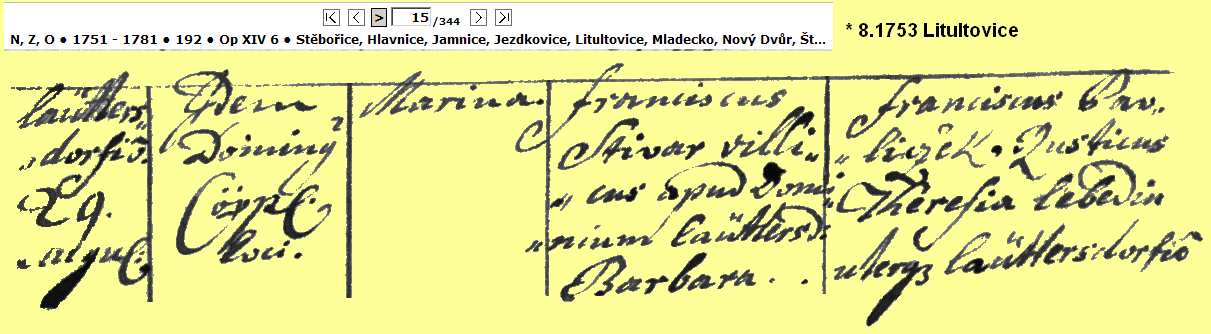 15 /344
N, Z, O ● 1751 - 1781 ● 192 ● Op XIV 6 ● Stěbořice, Hlavnice, Jamnice, Jezdkovice, Litultovice, Mladecko, Nový Dvůr, Št...
* 8.1753 Litultovice
laütters„
„dorfiô.
29.
Idem
Dominq
Coop
loci.
Marina.
Franciscus
Stivar villi„
„cus apud Domi„
„nium Laüttersd:
Barbara . .
Franciscus Pav„
„liczek. Rusticus
Theresia Lebedin
uterq3 Laüttersdorfiô